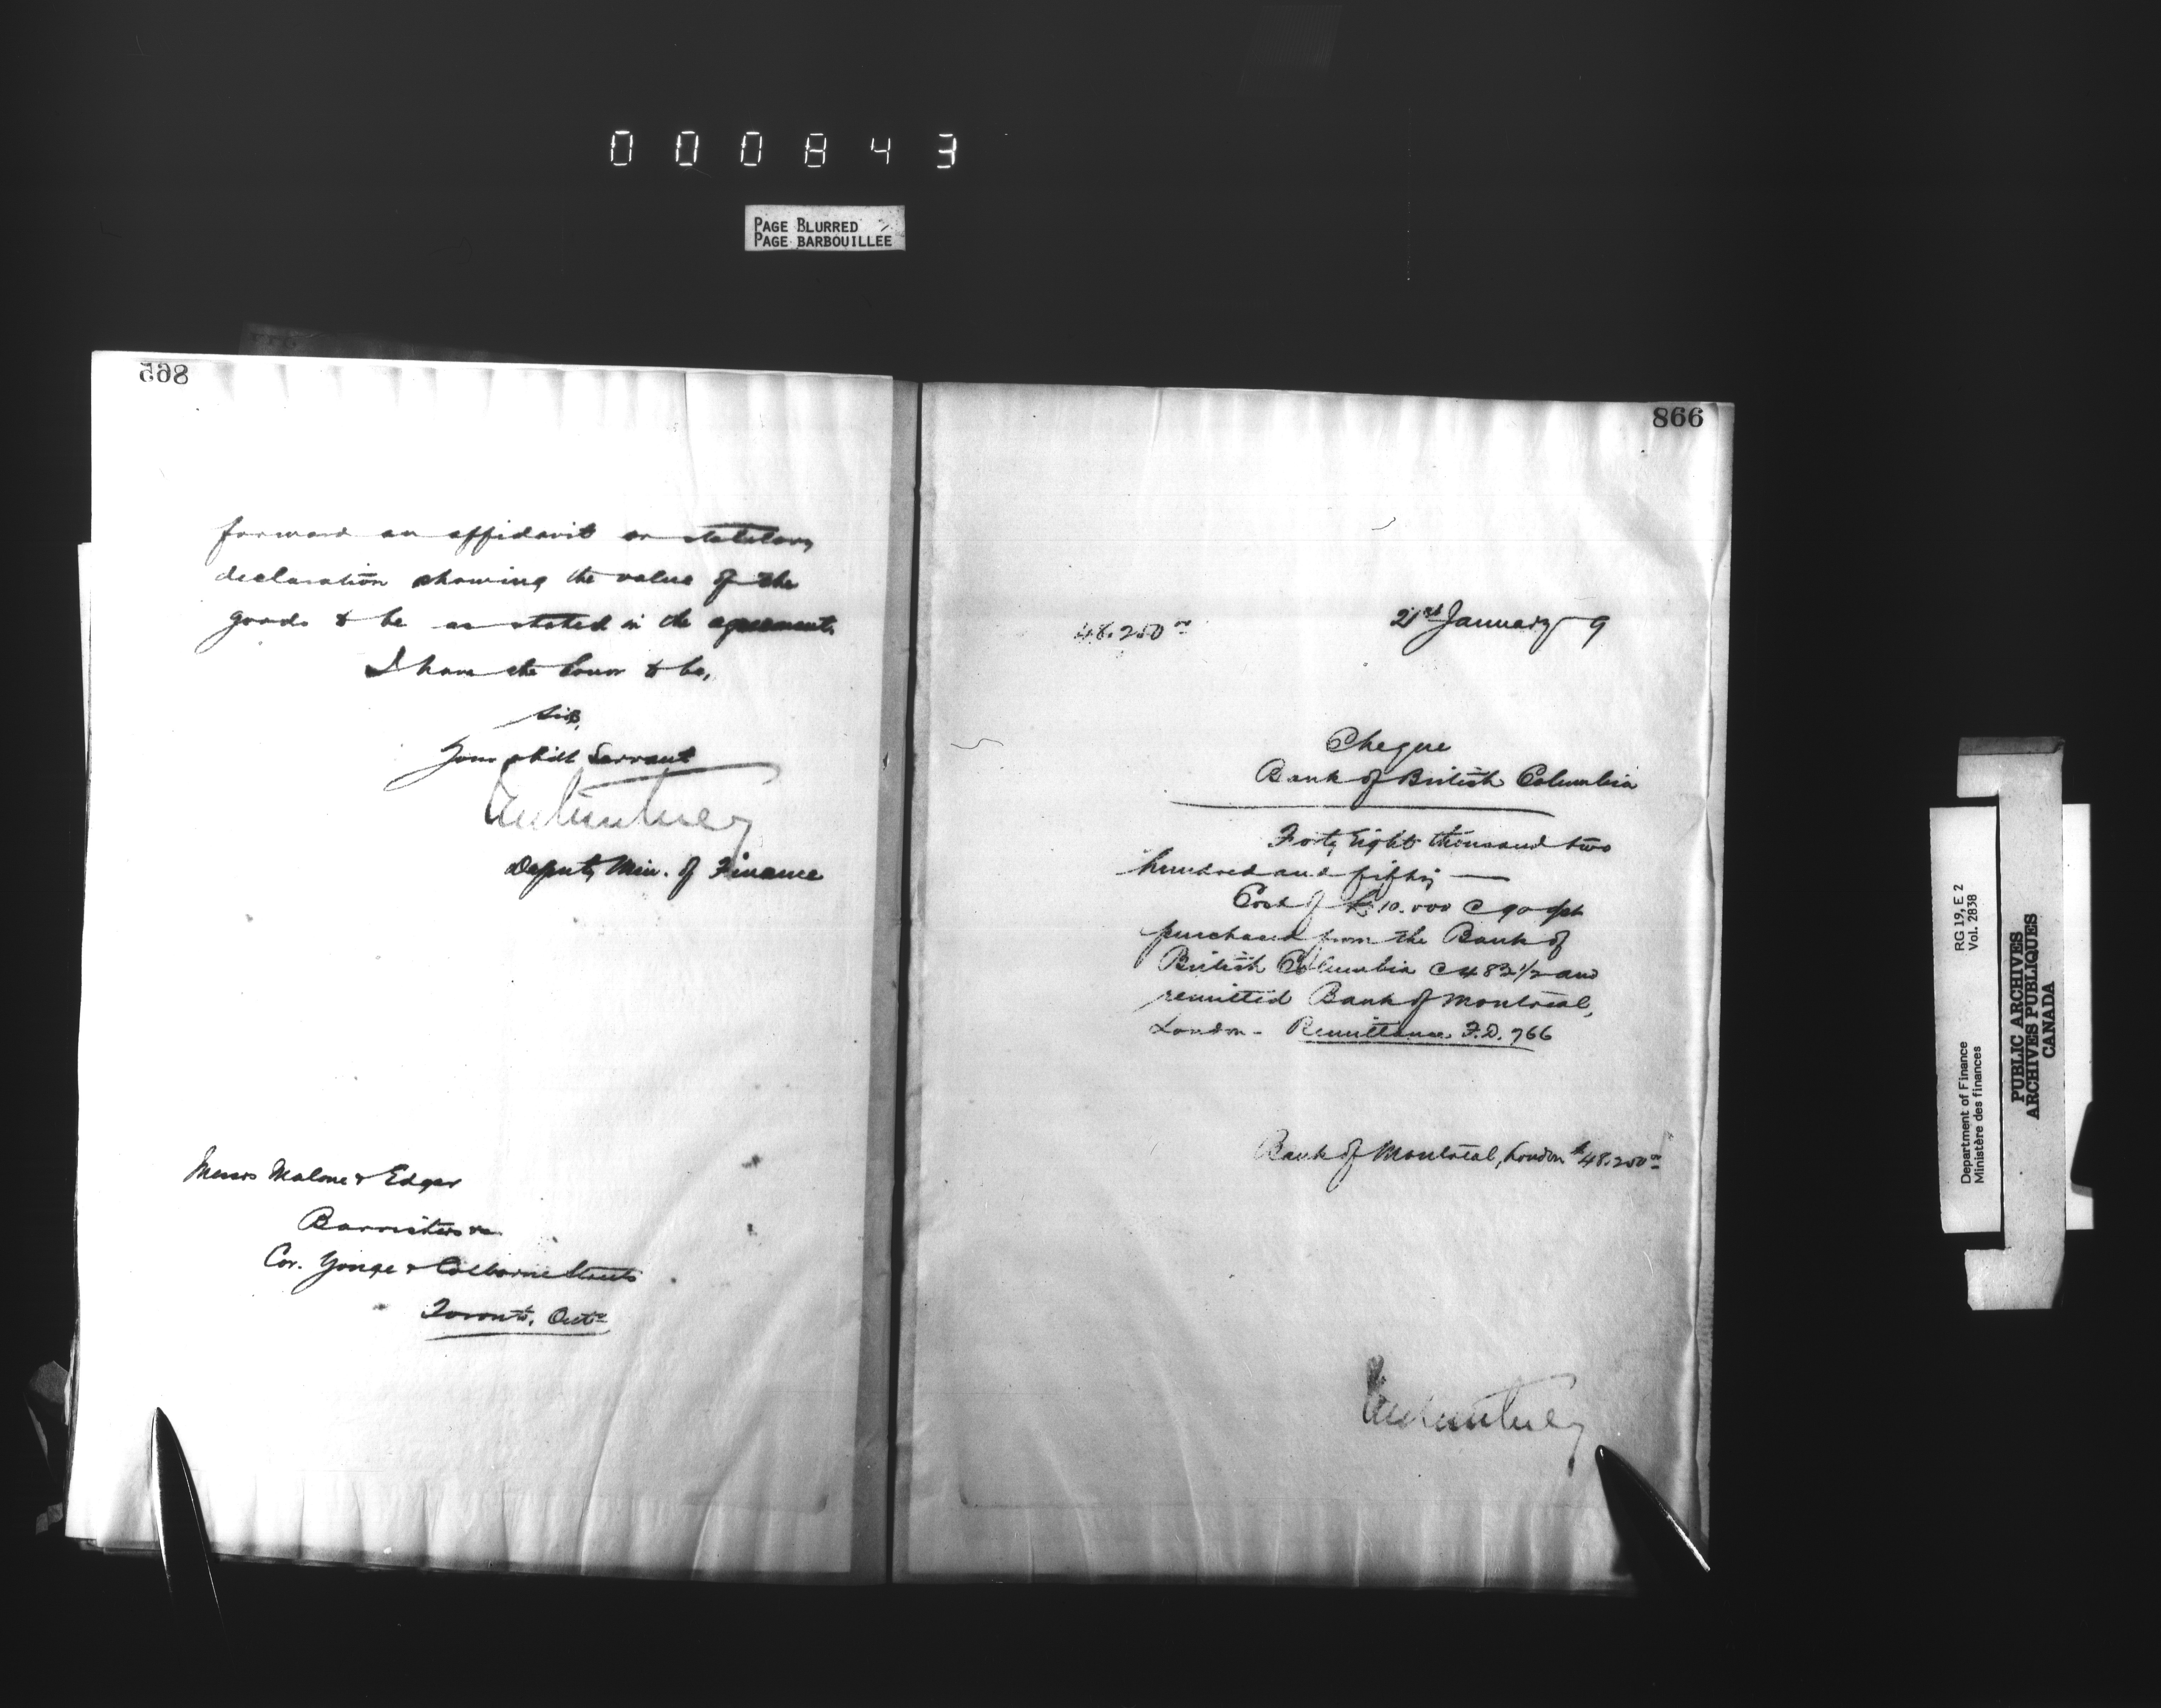 000843
PAGE BLURRED
PAGE BARBOUILLEE
865
forward an affidavit or statutory
declaration showing the value of the
goods to be as stated in the agreement.
I have the honor to be,
Sirs,
Your obdt Servant
Deputy Min. of Finance
Messrs Malone & Edgar
Barristers &c
Cor. Yonge & Colborne Streets
Toronto, Onto
866
48.250 00
21st January 9
Cheque
Bank of British Columbia
Forty Eight thousand two
hundred and fifty —
Cost of £10.000 @ 90 d/st
purchased from the Bank of
British Columbia @ 482½ and
remitted Bank of Montreal,
London - Remittance F.D. 766
Bank of Montreal, London $48.250 00
Department of Finance
Ministère des finances
RG 19, E 2
Vol. 2838
PUBLIC ARCHIVES
ARCHIVES PUBLIQUES
CANADA